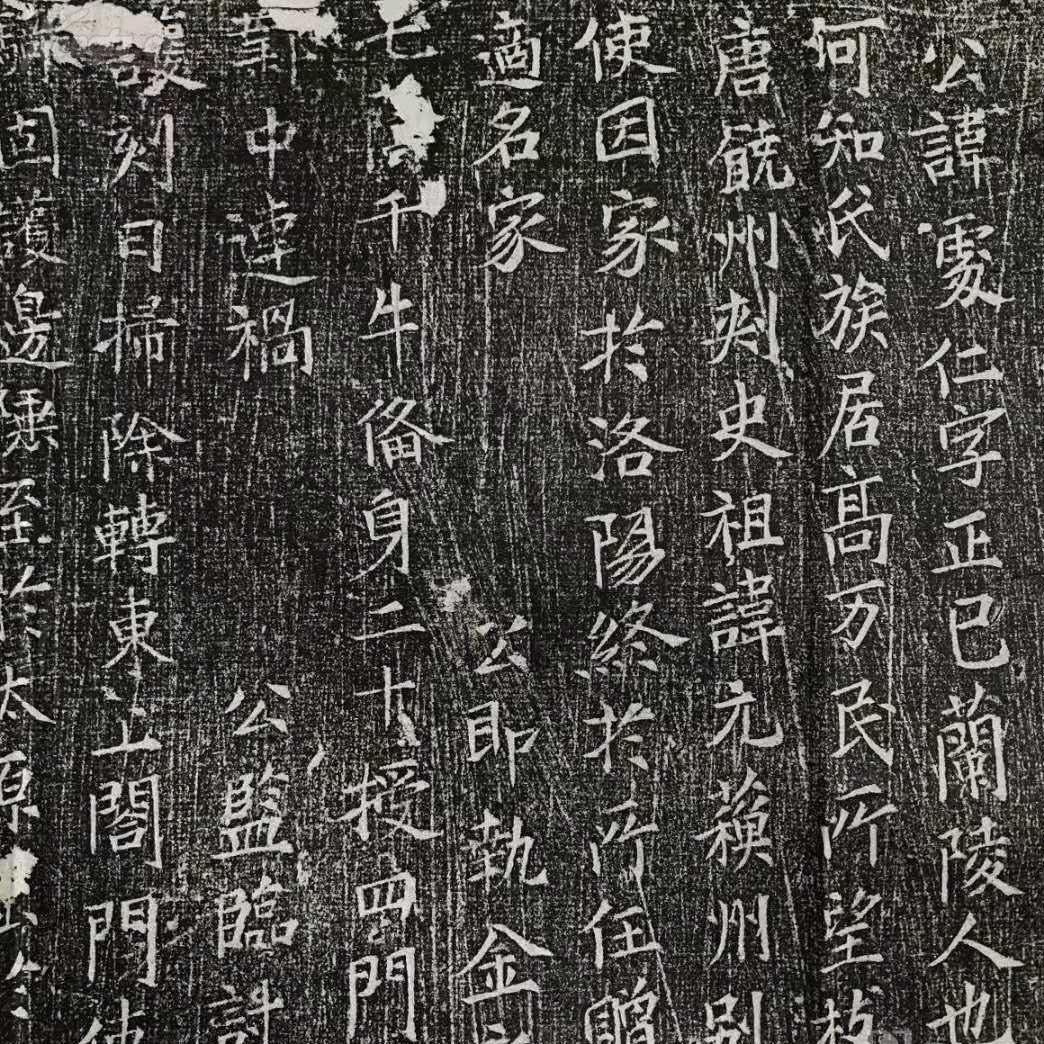 公諱處仁字正已蘭陵人也
何知氏族居高万民所望
唐饒州刾史祖諱元蘓州別
使因家於洛陽終於所任贈
適名家公即執金
七千牛俻身二十授四門
中連禍公監臨
刻日掃除轉東上閤門使
固護邊至於太原